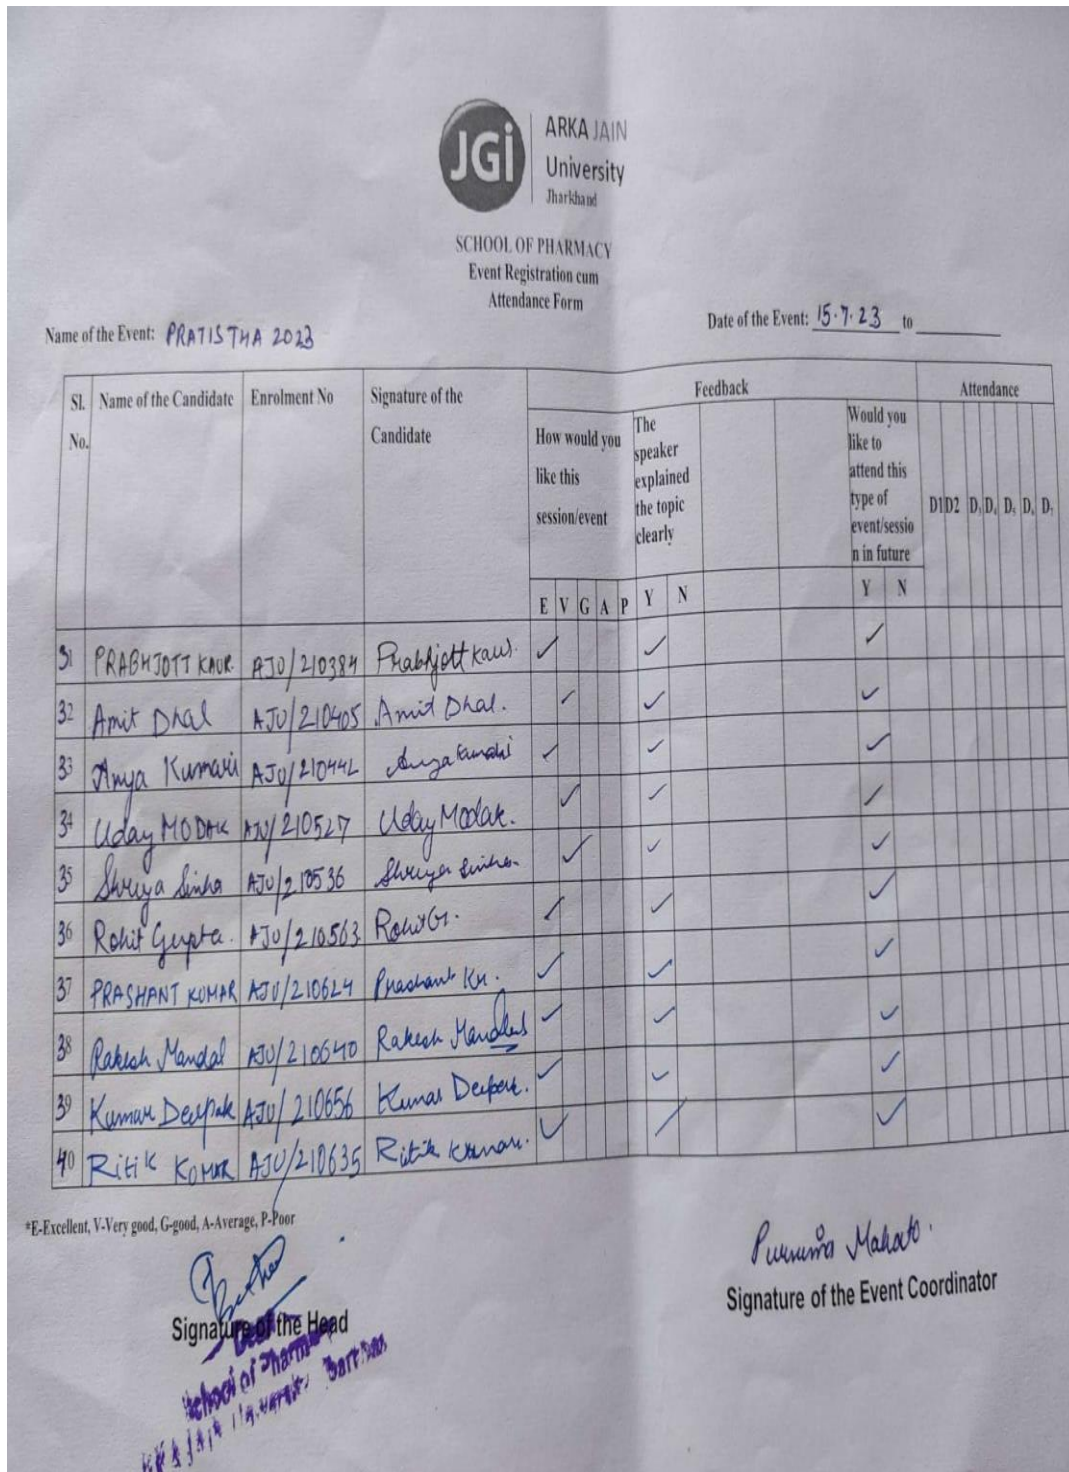 JGi
ARKA JAIN
University
Jharkhand
SCHOOL OF PHARMACY
Event Registration cum
Attendance Form
Name of the Event: PRATISTHA 2023
Date of the Event: 15.7.23 to
Sl. No. Name of the Candidate Enrolment No Signature of the Candidate Feedback Attendance
How would you like this session/event The speaker explained the topic clearly Would you like to attend this type of event/sessio n in future D1 D2 D3 D4 D5 D6 D7
E V G A P Y N Y N
31 PRABHJOTT KAUR. AJU/210384 Prabhjott Kaur. ✓ ✓ ✓
32 Amit Dhal AJU/210405 Amit Dhal. ✓ ✓ ✓
33 Anya Kumari AJU/210442 Anya Kumari ✓ ✓ ✓
34 Uday MODAK AJU/210527 Uday Modak. ✓ ✓ ✓
35 Shreya Sinha AJU/210536 Shreya Sinha. ✓ ✓ ✓
36 Rohit Gupta. AJU/210563 Rohit G. ✓ ✓ ✓
37 PRASHANT KUMAR AJU/210624 Prashant Kr. ✓ ✓ ✓
38 Rakesh Mandal AJU/210640 Rakesh Mandal ✓ ✓ ✓
39 Kumar Deepak AJU/210656 Kumar Deepak. ✓ ✓ ✓
40 Ritik KUMAR AJU/210635 Ritik Kumar. ✓ ✓ ✓
*E-Excellent, V-Very good, G-good, A-Average, P-Poor
Purnima Mahato.
Signature of the Head
Signature of the Event Coordinator
School of Pharmacy